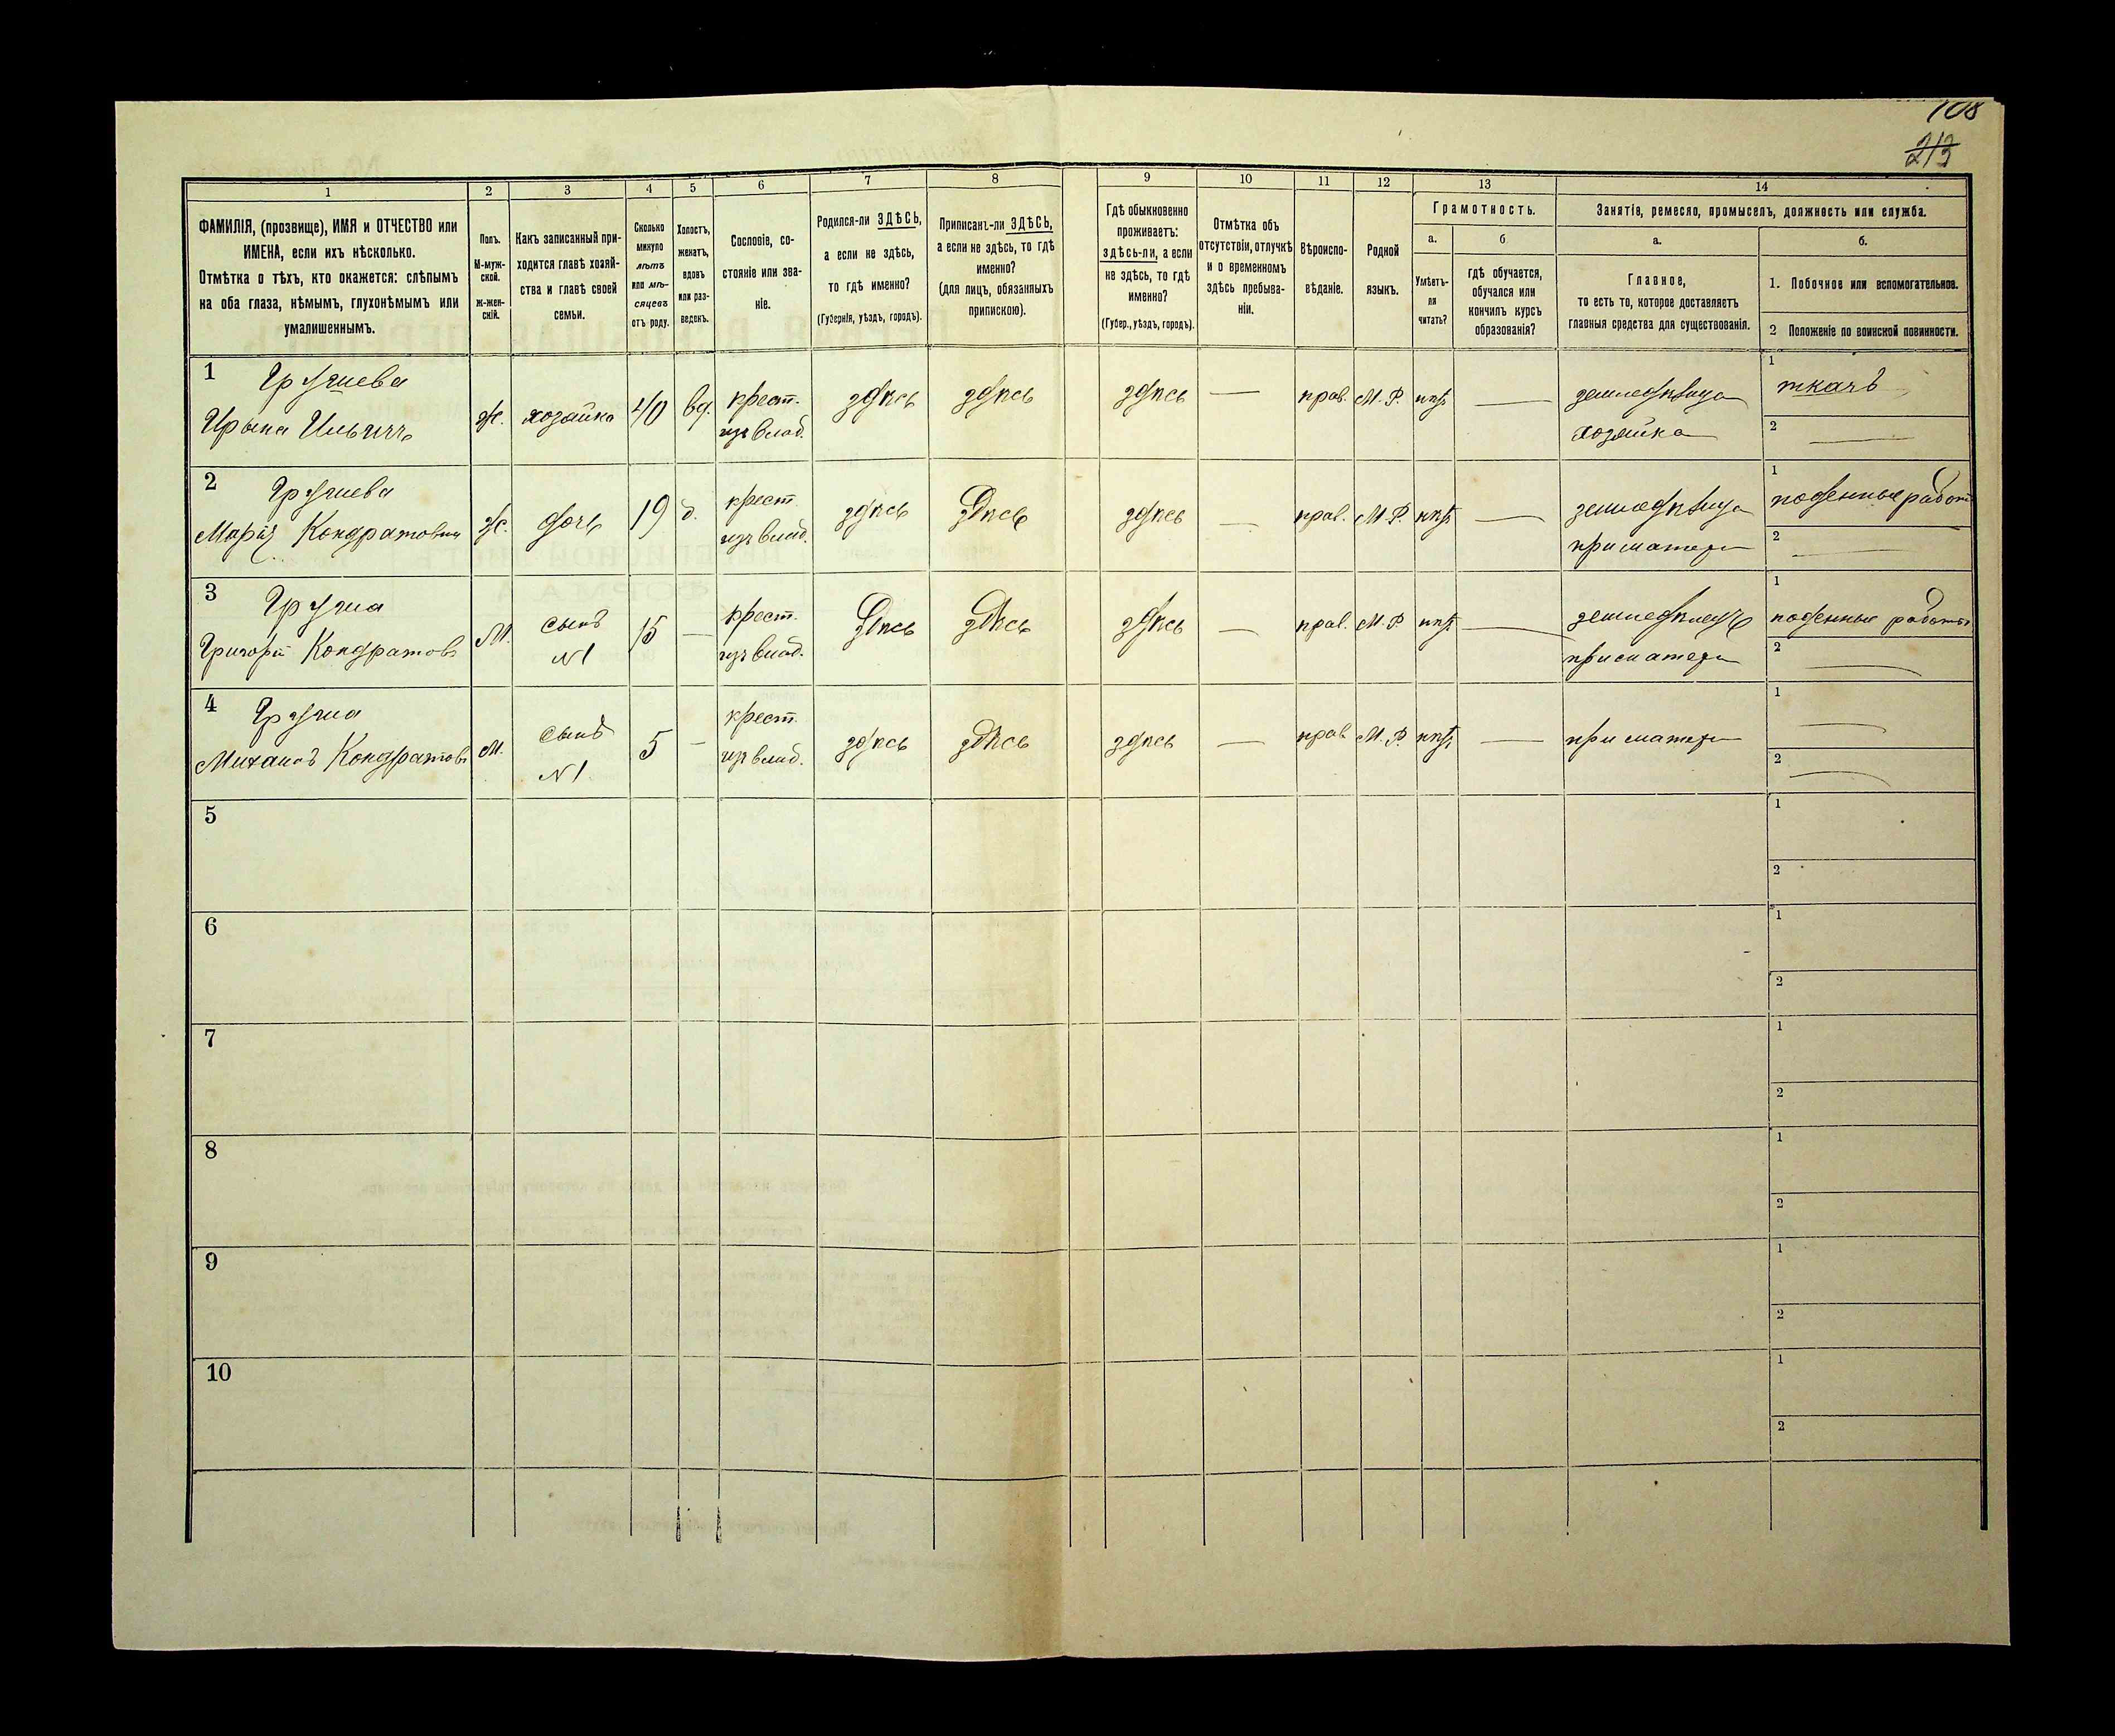 108
213
1 2 3 4 5 6 7 8 9 10 11 12 13 14
ФАМИЛІЯ, (прозвище), ИМЯ и ОТЧЕСТВО или
ИМЕНА, если ихъ нѣсколько.
Отмѣтка о тѣхъ, кто окажется: слѣпымъ
на оба глаза, нѣмымъ, глухонѣмымъ или
умалишеннымъ.
Полъ.
М-муж-
ской.
ж-жен-
скій.
Какъ записанный при-
ходится главѣ хозяй-
ства и главѣ своей
семьи.
Сколько
минуло
лѣтъ
или мѣ-
сяцевъ
отъ роду.
Холостъ,
женатъ,
вдовъ
или раз-
веденъ.
Сословіе, со-
стояніе или зва-
ніе.
Родился-ли ЗДѢСЬ,
а если не здѣсь,
то гдѣ именно?
(Губернія, уѣздъ, городъ).
Приписанъ-ли ЗДѢСЬ,
а если не здѣсь, то гдѣ
именно?
(для лицъ, обязанныхъ
припискою).
Гдѣ обыкновенно
проживаетъ:
здѣсь-ли, а если
не здѣсь, то гдѣ
именно?
(Губер., уѣздъ, городъ).
Отмѣтка объ
отсутствіи, отлучкѣ
и о временномъ
здѣсь пребыва-
ніи.
Вѣроиспо-
вѣданіе.
Родной
языкъ.
Грамотность.
а.
Умѣетъ-
ли
читать?
б
гдѣ обучается,
обучался или
кончилъ курсъ
образованія?
Занятія, ремесло, промыселъ, должность или служба.
а.
Главное,
то есть то, которое доставляетъ
главныя средства для существованія.
б.
1. Побочное или вспомогательное.
2 Положеніе по воинской повинности.
1
Ирына Ильичъ
ж.
хозяйка
40
вд.
крест.
изъ влад.
здѣсь
здѣсь
здѣсь
—
прав.
М. Р.
нѣт
—
хозяйка
1 ткачъ
2 —
2
Марія Кондратовна
ж.
дочь
19
д.
крест.
изъ влад.
здѣсь
здѣсь
здѣсь
—
прав.
М. Р.
нѣт
—
при матери
1 поденные работ
2 —
3
Григорій Кондратовъ
М.
сынъ
N 1
15
—
крест.
изъ влад.
здѣсь
здѣсь
здѣсь
—
прав.
М. Р.
нѣт
—
земледѣлецъ
при матери
1 поденные работы
2 —
4
Михаилъ Кондратовъ
М.
сынъ
N 1.
5
—
крест.
изъ влад.
здѣсь
здѣсь
здѣсь
—
прав.
М. Р.
нѣт
—
при матери
1 —
2 —
5
1
2
6
1
2
7
1
2
8
1
2
9
1
2
10
1
2